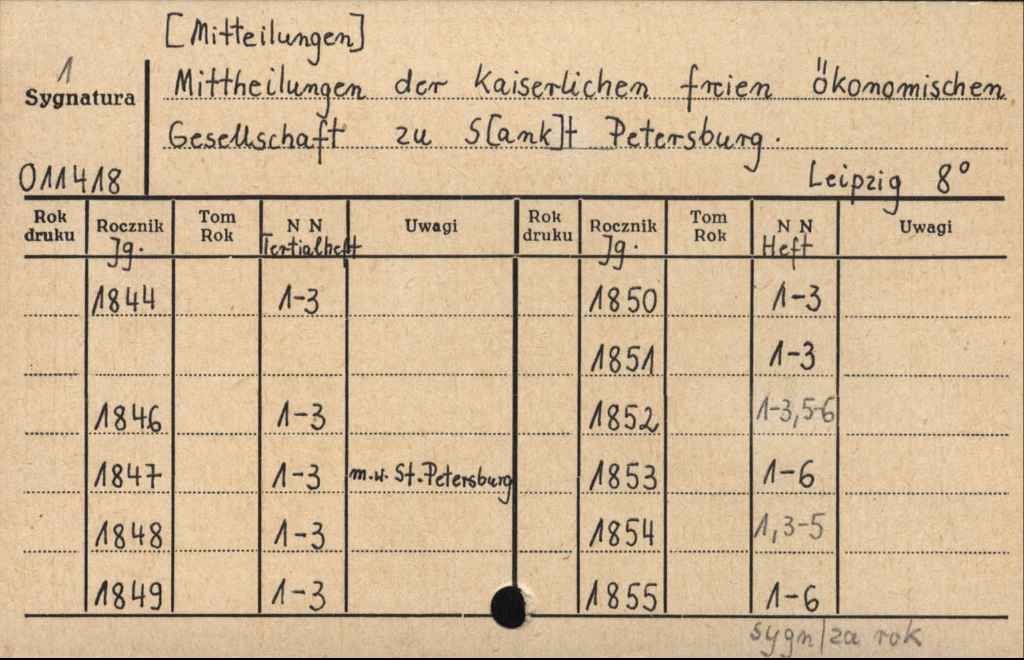 [Mitteilungen]
1
Sygnatura
Mittheilungen der Kaiserlichen freien ökonomischen
Gesellschaft zu S[ank]t Petersburg.
011418
Leipzig 8°
Rok druku Rocznik Tom Rok N N Uwagi Rok druku Rocznik Tom Rok N N Uwagi
Jg. Tertialheft Jg. Heft
1844 1-3 1850 1-3
1851 1-3
1846 1-3 1852 1-3,5-6
1847 1-3 m.w. St. Petersburg 1853 1-6
1848 1-3 1854 1,3-5
1849 1-3 1855 1-6
sygn/za rok